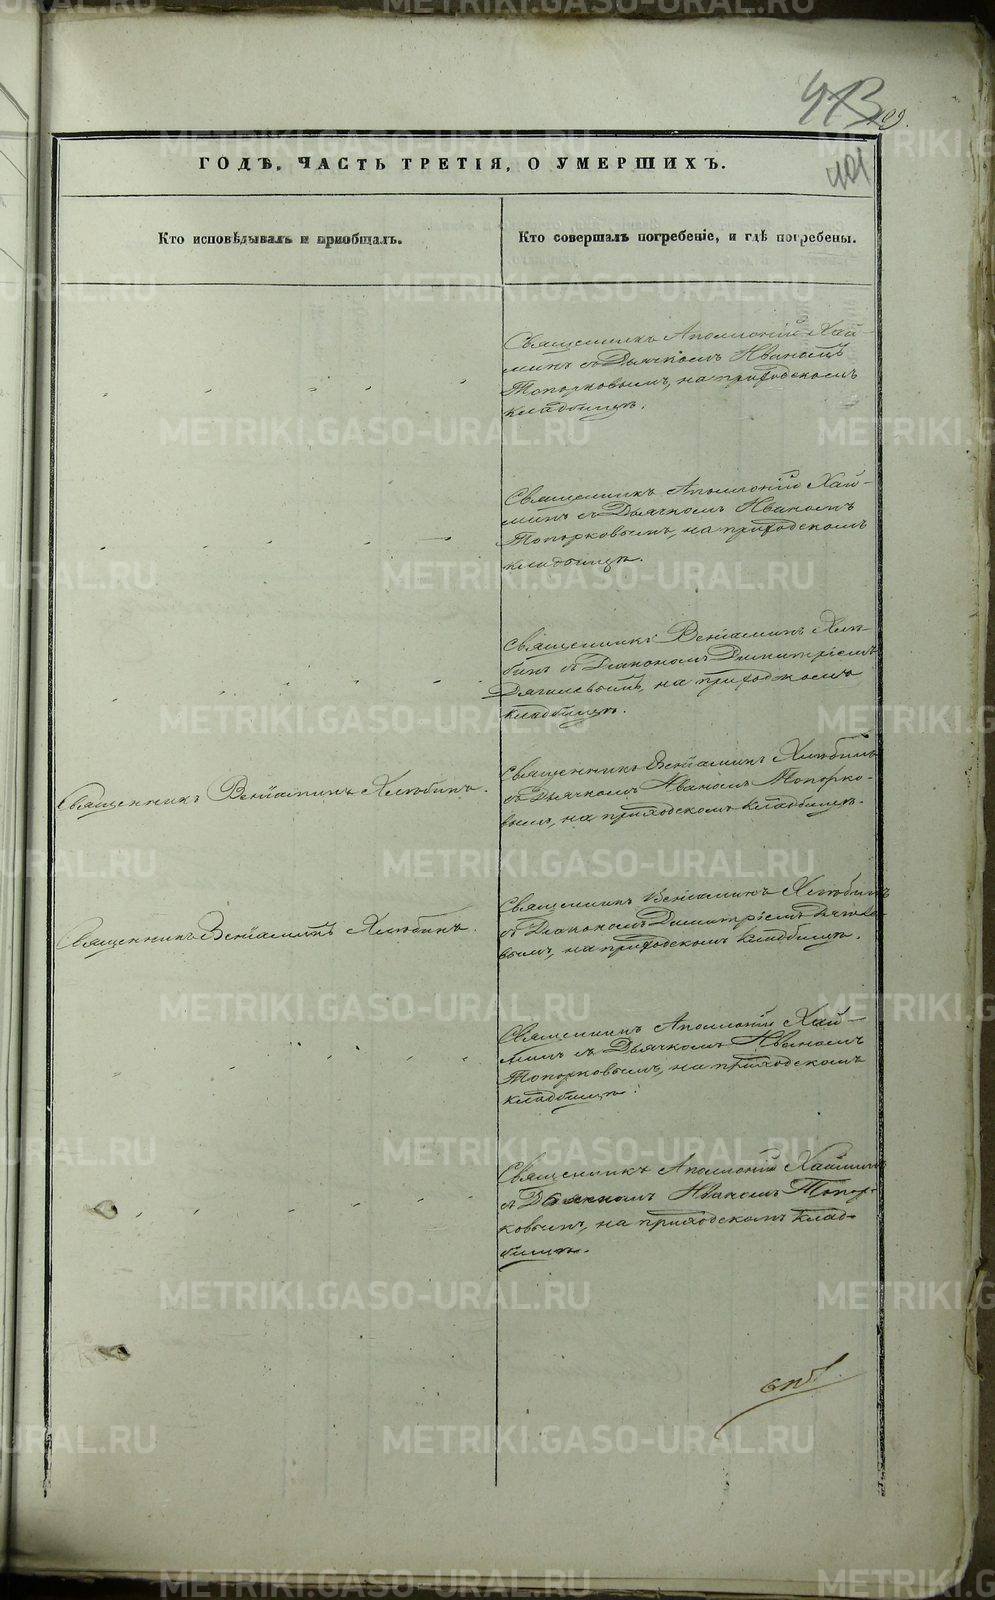 413
99.
401
ГОДѢ, ЧАСТЬ ТРЕТІЯ, О УМЕРШИХЪ.
Кто исповѣдывалъ и приобщалъ.
Кто совершалъ погребеніе, и гдѣ погребены.
Священникъ Аполлоній Хай-
минъ съ Дьячкомъ Иваномъ
Топорковымъ, на приходскомъ
кладбищѣ.
Священникъ Аполлоній Хай-
минъ съ Дьячкомъ Иваномъ
Топорковымъ, на приходскомъ
кладбищѣ.
Священникъ Веніаминъ Хлѣ-
бинъ съ Діакономъ Димитріемъ
на приходскомъ
кладбищѣ.
Священникъ Веніаминъ Хлѣбинъ.
Священникъ Веніаминъ Хлѣбинъ
съ Дьячкомъ Иваномъ Топорко-
вымъ, на приходскомъ кладбищѣ.
Священникъ Веніаминъ Хлѣбинъ.
Священникъ Веніаминъ Хлѣбинъ
съ Діакономъ Димитріемъ
вымъ, на приходскомъ кладбищѣ.
Священникъ Аполлоній Хай-
минъ съ Дьячкомъ Иваномъ
Топорковымъ, на приходскомъ
кладбищѣ.
Священникъ Аполлоній Хайминъ
съ Дьячкомъ Иваномъ Топор-
ковымъ, на приходскомъ клад-
бищѣ.
METRIKI.GASO-URAL.RU